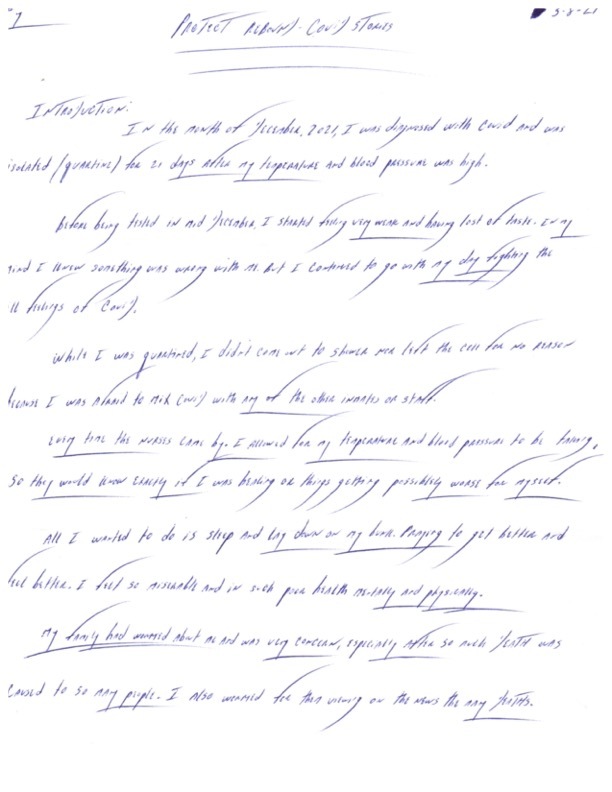 1
5-8-21
PROJECT REBOUND - COVID STORIES
INTRODUCTION:
IN the month of December, 2021, I was diagnosed with Covid and was
isolated (quartine) for 21 days after my temperature and blood pressure was high.
Before being tested in mid December, I started feeling very weak and having lost of taste. In my
mind I knew something was wrong with me. But I continued to go with my day fighting the
ill feelings of Covid.
While I was quartined, I didn't come out to shower nor left the cell for no reason
because I was afraid to mix Covid with any of the other inmates or staff.
Every time the nurses came by. I allowed for my temperature and blood pressure to be taking,
so they would know exactly if I was healing or things getting possiblely worse for myself.
All I wanted to do is sleep and lay down on my bunk. Praying to get better and
feel better. I feel so miserable and in such poor health mentally and physically.
My family had worried about me and was very concern, especially after so much death was
caused to so many people. I also worried for them viewing on the news the many deaths.